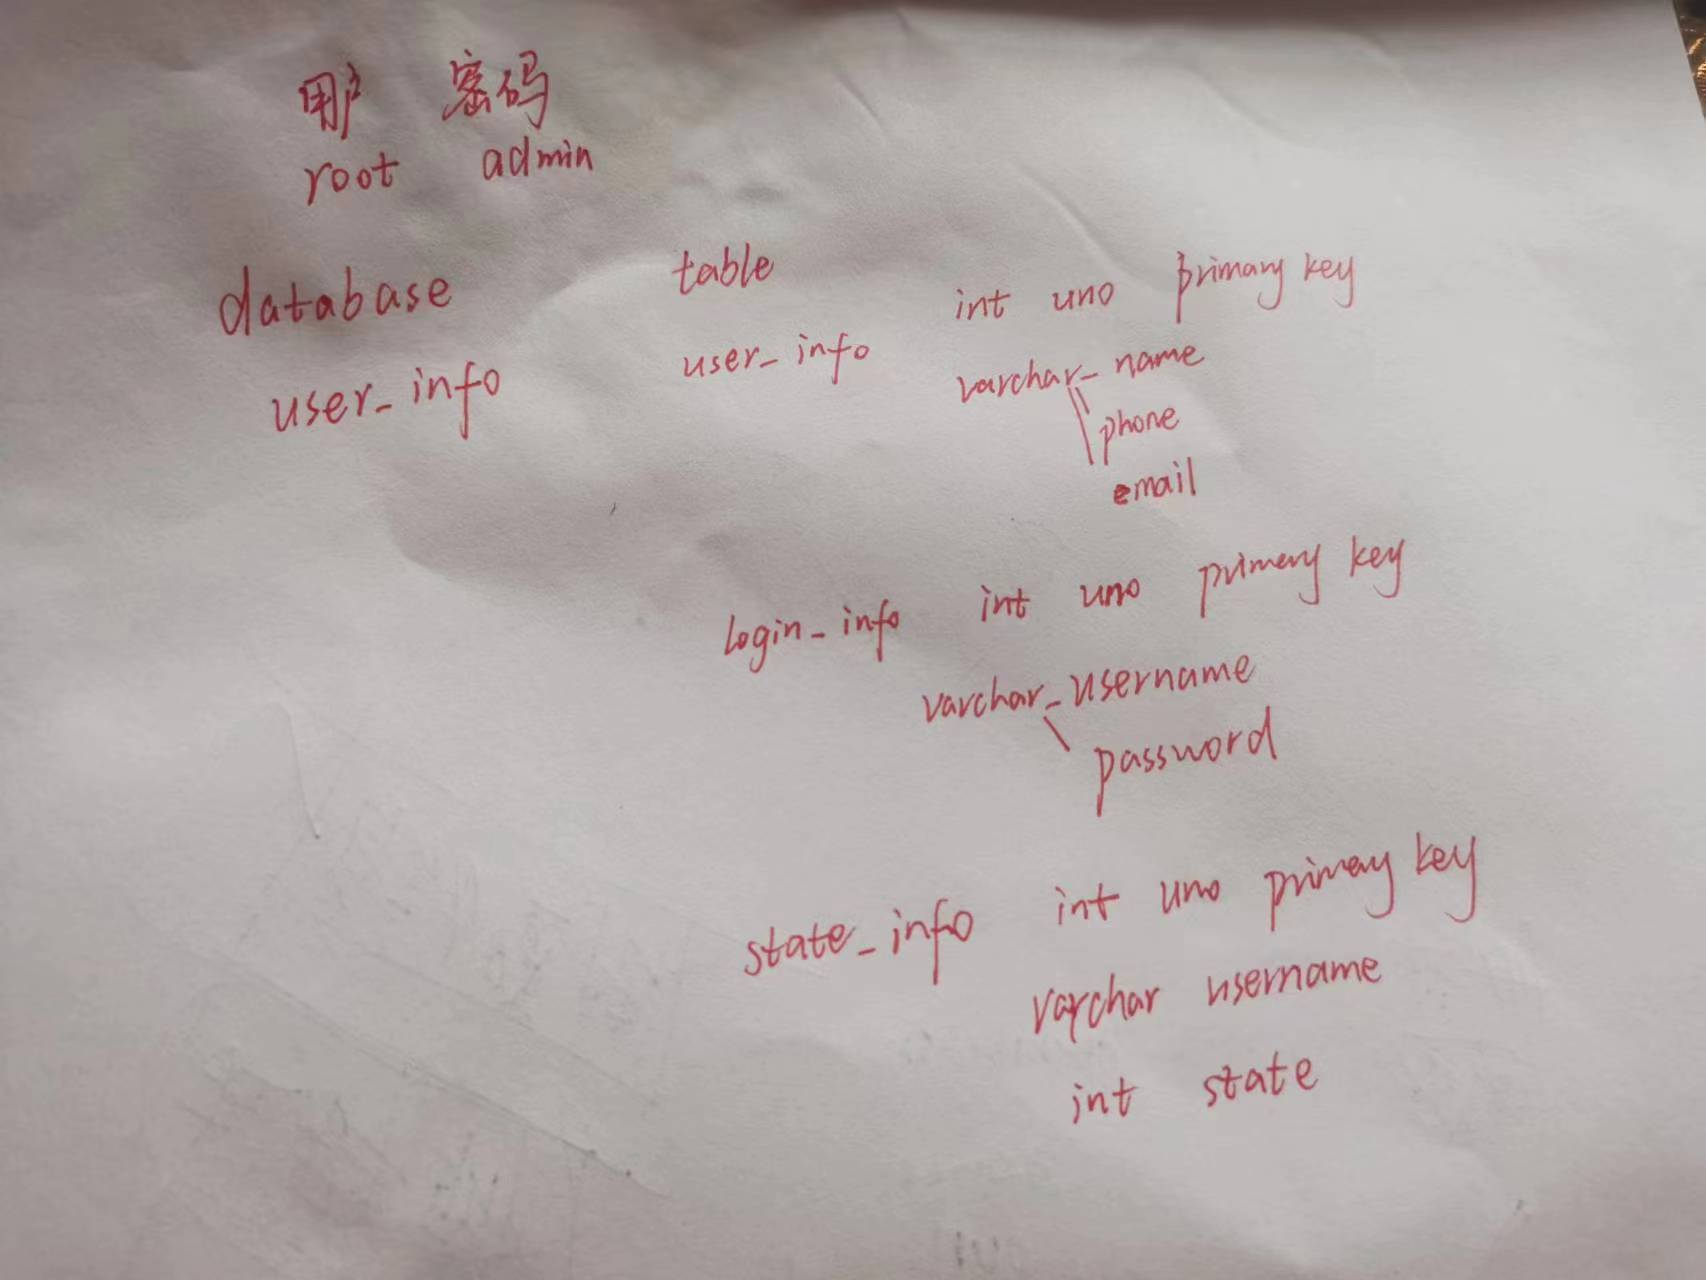 用户 密码
root admin
database table
user_info user_info int uno primary key
varchar_ name
phone
email
login_info int uno primery key
varchar_username
password
state_info int uno primary key
varchar username
int state